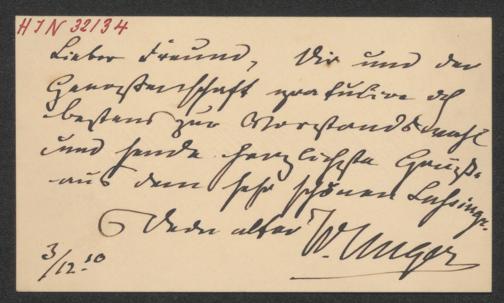 HIN 32134
Lieber Freund, Dir und der
Genossenschaft gratulire ich
bestens zur Vorstandswahl
und sende herzlichste Grüße
aus dem sehr schönen
Dein alter W. Unger
3/12.10